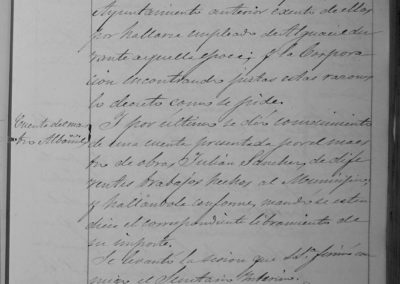 Ayuntamiento anterior exento de ellos
por hallarse empleado de Alguacil du-
rante aquella época; y la Corpora-
cion encontrando justas estas razones
lo decretó como se pide.
Cuenta del ma-
tro Albañil
Y por ultimo se dió conocimiento
de una cuenta presentada por el maes-
tro de obras Julián Sanchez de dife-
rentes trabajos hechos al Municipio,
y hallándola conforme, mandó se esten-
diese el correspondiente libramiento de
su importe.
Se levantó la sesion que S.Sª firmó con-
migo el Secretario Interino.